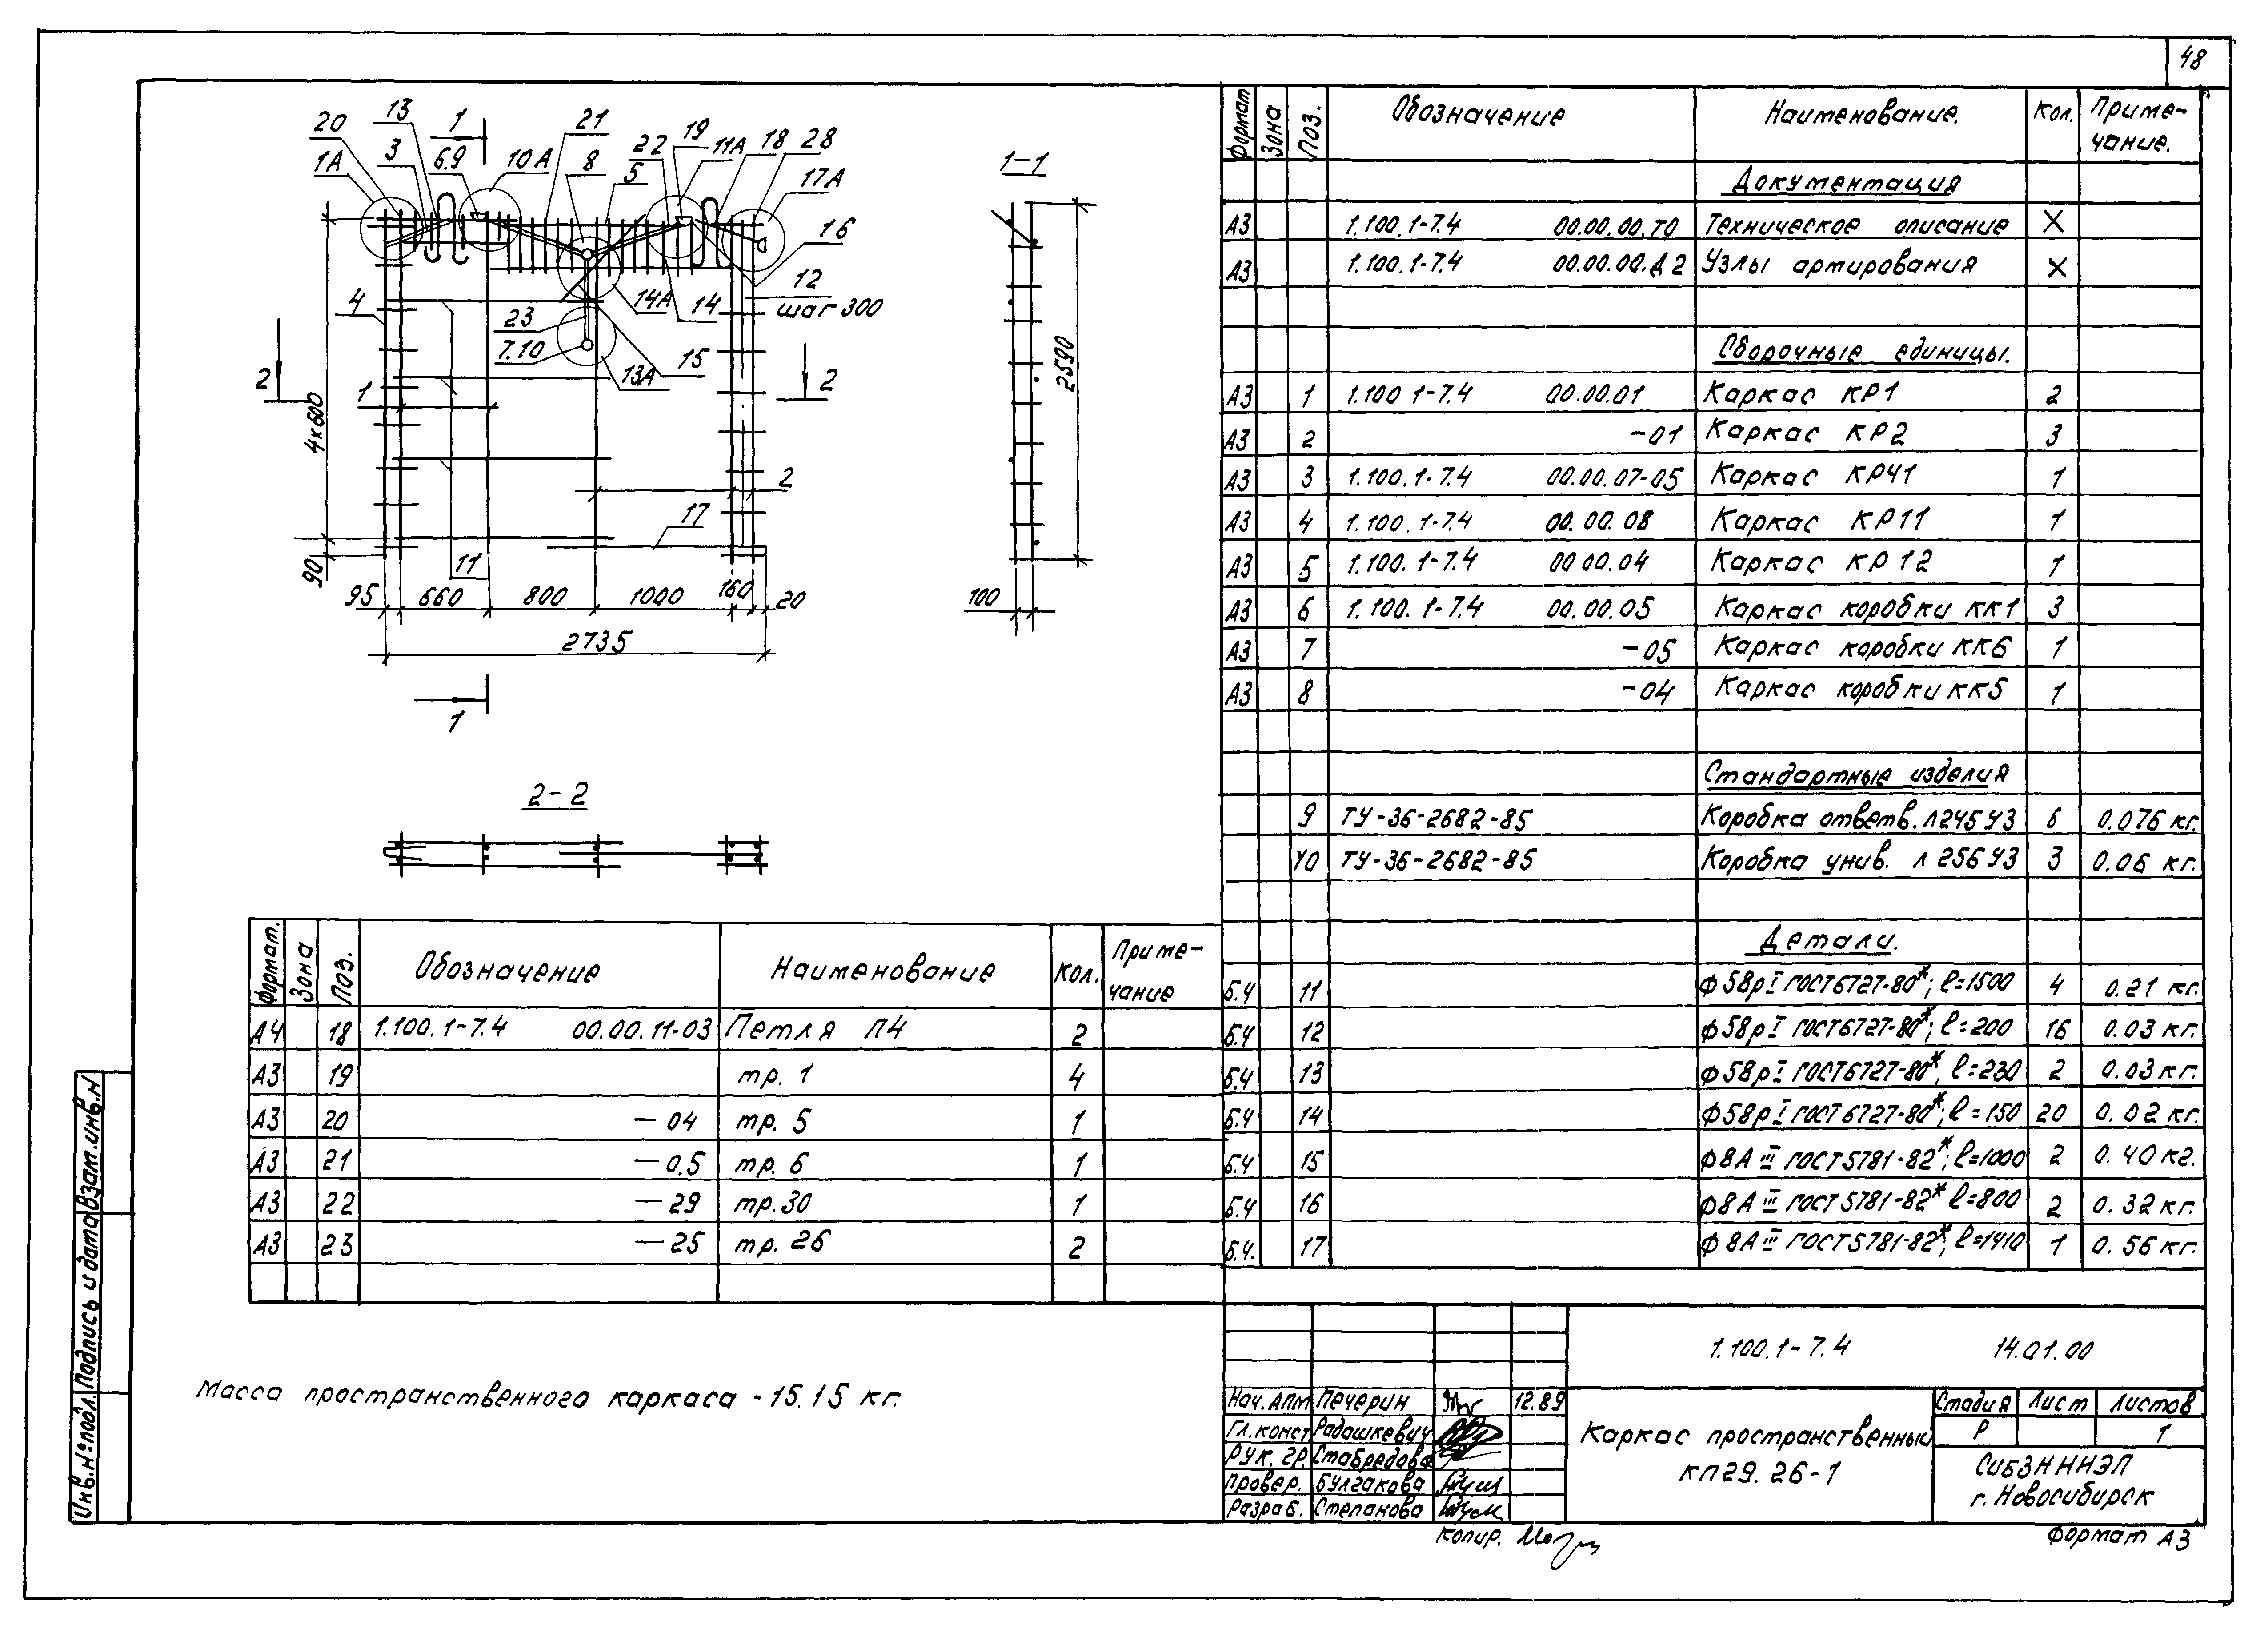 48
20
13
1
21
19
11А
18
28
1А
3
6.9
10А
8
22
5
17А
1-1
16
4
12
шаг 300
14А
14
23
7.10
15
13А
2
2
1
4×600
2590
2
17
90
11
95
660
800
1000
160
20
100
2735
1
2-2
Формат
Зона
Поз.
Обозначение
Наименование.
Кол.
Приме-
чание.
Документация
А3 1.100.1-7.4 00.00.00.ТО Техническое описание X
А3 1.100.1-7.4 00.00.00.Д2 Узлы армирования X
Сборочные единицы.
А3 1 1.100 1-7.4 00.00.01 Каркас КР1 2
А3 2 -01 Каркас КР2 3
А3 3 1.100.1-7.4 00.00.07-05 Каркас КР41 1
А3 4 1.100.1-7.4 00.00.08 Каркас КР11 1
А3 5 1.100.1-7.4 00 00.04 Каркас КР12 1
А3 6 1.100.1-7.4 00.00.05 Каркас коробки КК1 3
А3 7 -05 Каркас коробки КК6 1
А3 8 -04 Каркас коробки КК5 1
Стандартные изделия
9 ТУ-36-2682-85 Коробка ответв. Л245У3 6 0.076 кг.
10 ТУ-36-2682-85 Коробка унив. Л256У3 3 0.06 кг.
Детали.
Б.Ч 11 Ф5ВрI ГОСТ6727-80*; ℓ=1500 4 0.21 кг.
Б.Ч 12 Ф5ВрI ГОСТ6727-80*; ℓ=200 16 0.03 кг.
Б.Ч 13 Ф5ВрI ГОСТ6727-80*; ℓ=230 2 0.03 кг.
Б.Ч 14 Ф5ВрI ГОСТ6727-80*; ℓ=150 20 0.02 кг.
Б.Ч 15 Ф8АIII ГОСТ5781-82*; ℓ=1000 2 0.40 кг.
Б.Ч 16 Ф8АIII ГОСТ5781-82* ℓ=800 2 0.32 кг.
Б.Ч. 17 Ф8АIII ГОСТ5781-82*; ℓ=1410 1 0.56 кг.
Формат.
Зона
Поз.
Обозначение
Наименование
Кол.
Приме-
чание
А4 18 1.100.1-7.4 00.00.11-03 Петля П4 2
А3 19 тр. 1 4
А3 20 -04 тр. 5 1
А3 21 -0.5 тр. 6 1
А3 22 -29 тр. 30 1
А3 23 -25 тр. 26 2
Масса пространственного каркаса - 15.15 кг.
1.100.1-7.4 14.01.00
Нач. АПМ Печерин 12.89
Гл.конст Радашкевич
Рук. гр. Стабредова
Провер. Булгакова
Разраб. Степанова
Каркас пространственный
КП29.26-1
Стадия Лист Листов
Р 1
СибЗНИИЭП
г. Новосибирск
Копир.
Формат А3
Инв.№подл.
Подпись и дата
Взам.инв.N